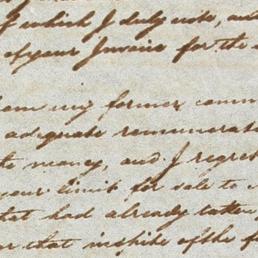 of which I duly note, and
of your Invoice for the
my former comm
adequate remunerat
the money, and I regret
your limit for sale to
that had already taken
or that inspite of the f